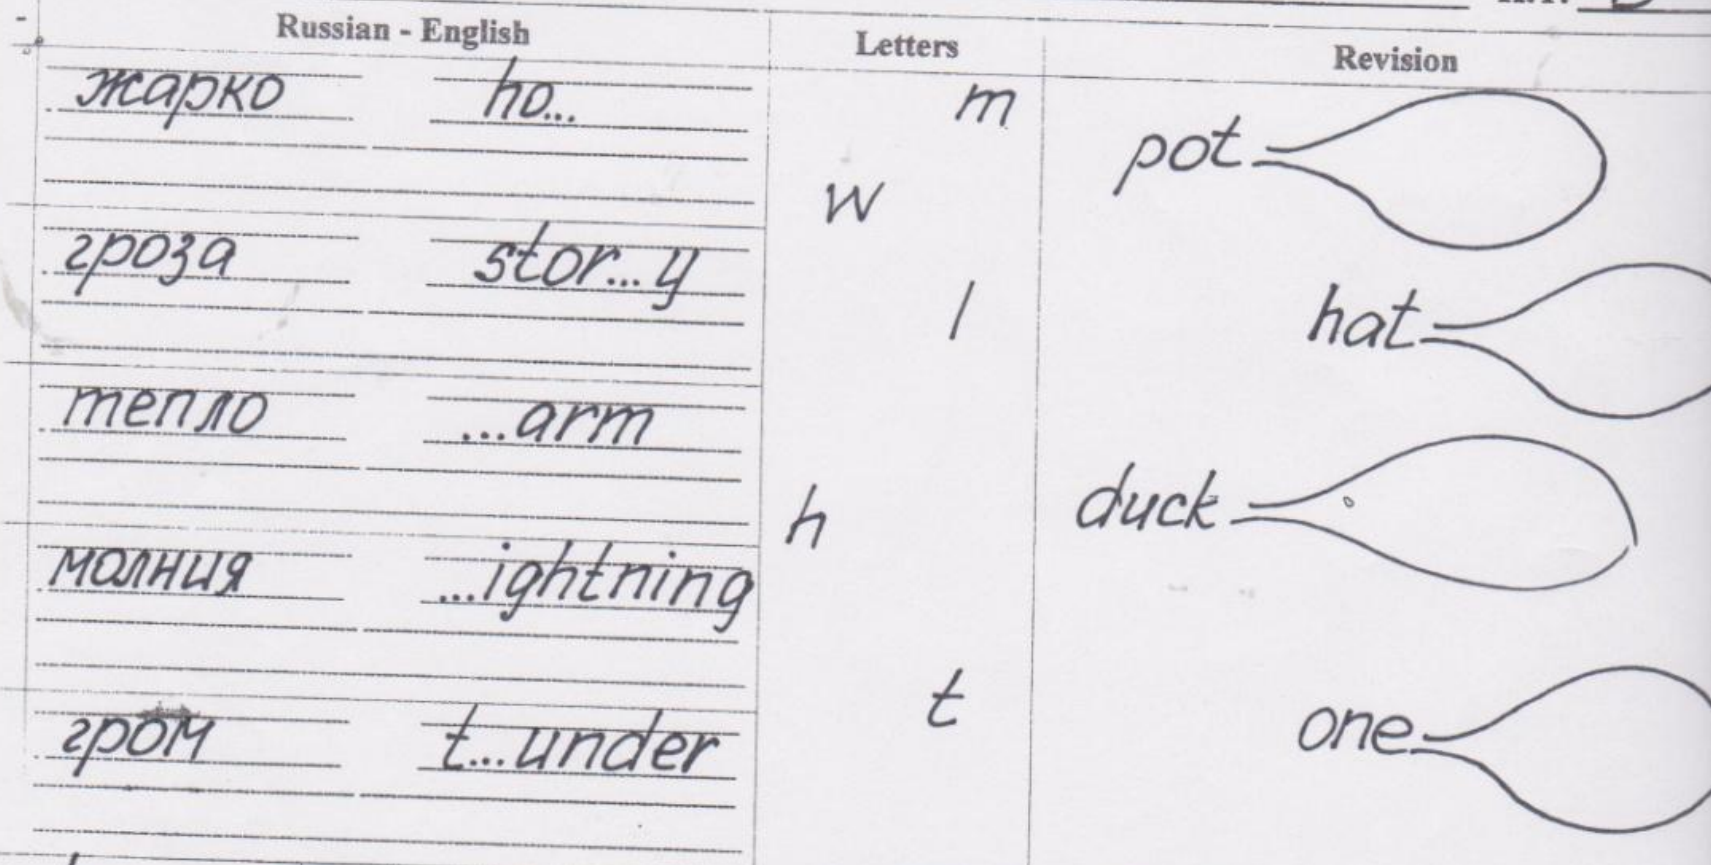 Russian - English
Letters
Revision
жарко ho...
m
pot
w
гроза stor...y
l
hat
тепло ...arm
h
duck
молния ...ightning
t
one
гром t...under